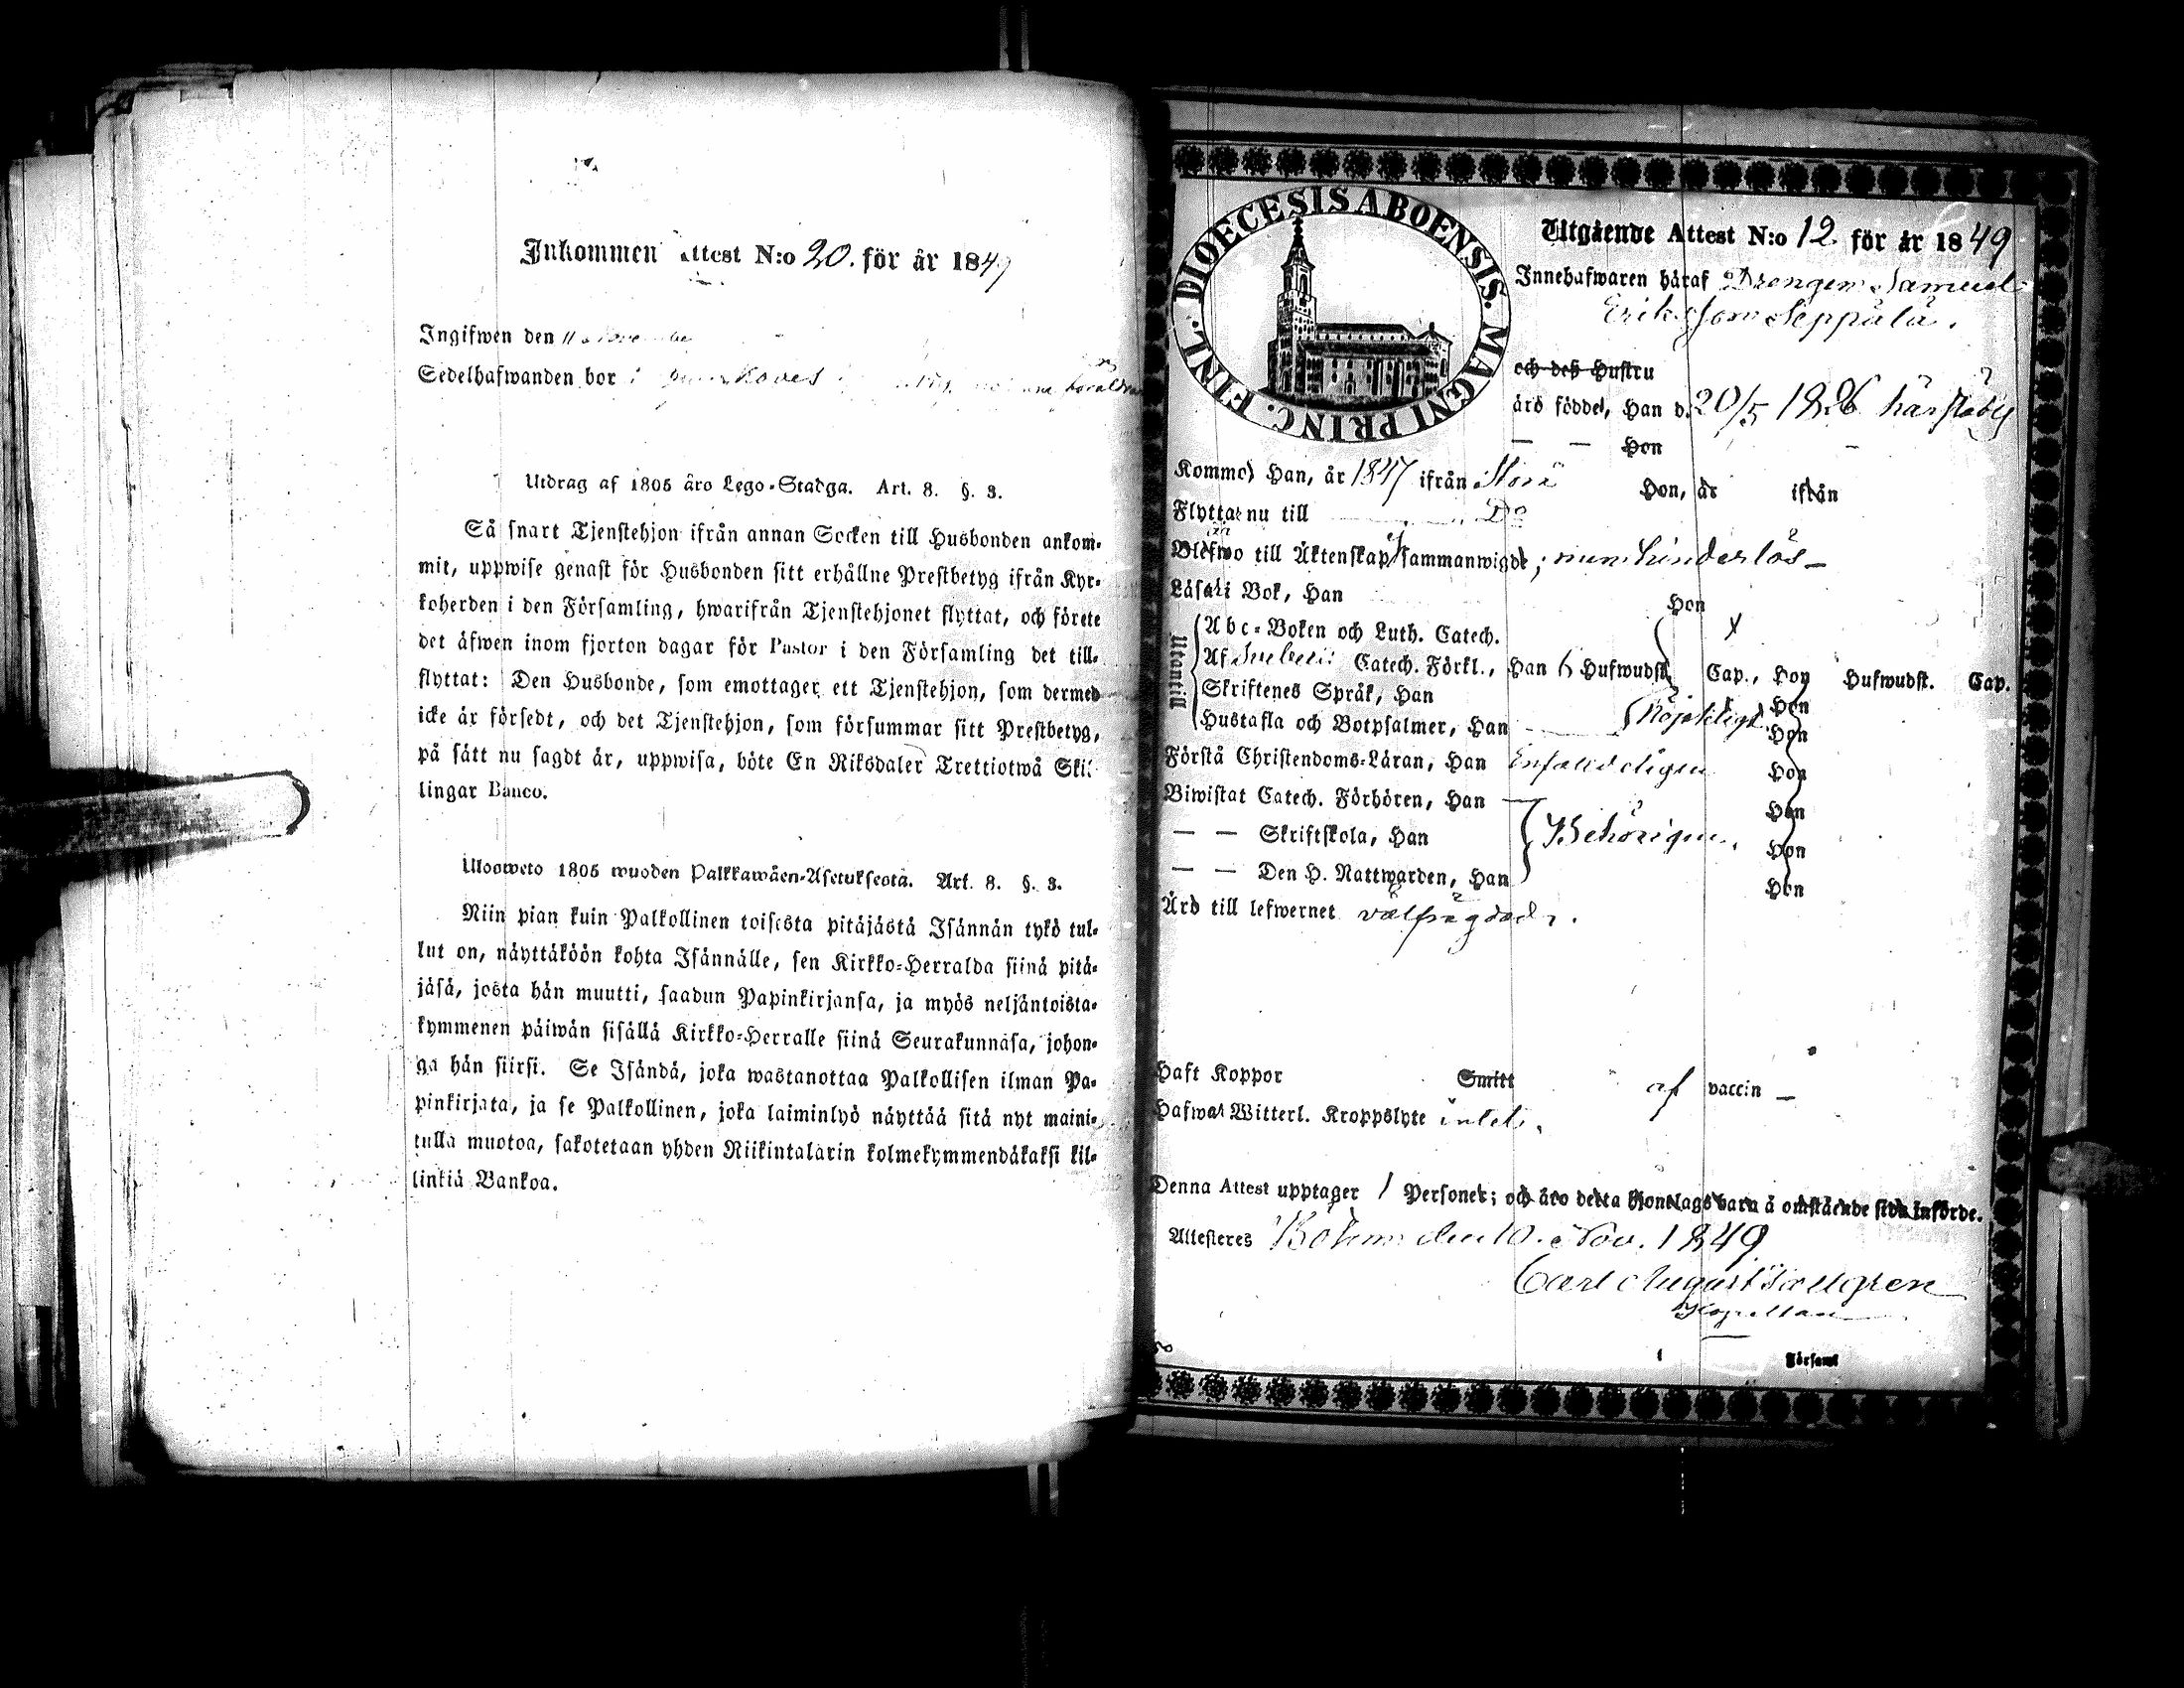 Inkommen Attest N:o 20. för år 1849
Ingifwen den 11 November
Sedelhafwanden bor i
Utdrag af 1805 års Lego-Stadga. Art. 8. §. 3.
Så snart Tjenstehjon ifrån annan Socken till Husbonden ankom-
mit, uppwise genast för Husbonden sitt erhållne Prestbetyg ifrån Kyr-
koherden i den Församling, hwarifrån Tjenstehjonet flyttat, och förete
det äfwen inom fjorton dagar för Pastor i den Församling det till-
flyttat: Den Husbonde, som emottager ett Tjenstehjon, som dermed
icke är försedt, och det Tjenstehjon, som försummar sitt Prestbetyg,
på sätt nu sagdt är, uppwisa, böte En Riksdaler Trettiotwå Skil-
lingar Banco.
Ulosweto 1805 wuoden Palkkawäen-Asetuksesta. Art. 8. §. 3.
Niin pian kuin Palkollinen toisesta pitäjästä Isännän tykö tul-
lut on, näyttäköön kohta Isännälle, sen Kirkko-Herralda siinä pitä-
jäsä, josta hän muutti, saadun Papinkirjansa, ja myös neljäntoista-
kymmenen päiwän sisällä Kirkko-Herralle siinä Seurakunnasa, johon-
ga hän siirsi. Se Isändä, joka wastanottaa Palkollisen ilman Pa-
pinkirjata, ja se Palkollinen, joka laiminlyö näyttää sitä nyt maini-
tulla muotoa, sakotetaan yhden Riikintalarin kolmekymmendäkaksi kil-
linkiä Bankoa.
DIOECESIS ABOENSIS. MAGNI PRINC. FINL.
Utgående Attest N:o 12 för år 1849
Innehafwaren häraf Drengen Samuel
Eriksson Seppälä.
och deß Hustru
äro födde, Han d. 20/5 1826 härstädes
— — Hon
Kommo Han, år 1847 ifrån Hon, år ifrån
Flyttar nu till Do
Blefwo till Äktenskap sammanwigde; hinderlös
Läsa i Bok, Han Hon
Utantill
Abc-Boken och Luth. Catech.
Af Svebelii Catech. Förkl., Han 6 Hufwudst. Cap., Hon Hufwudst. Cap.
Skriftenes Språk, Han Hon
Hustafla och Botpsalmer, Han Nöjaktigt Hon
Förstå Christendoms-Läran, Han Enfaldeligen Hon
Biwistat Catech. Förhören, Han Hon
— — Skriftskola, Han Behörigen. Hon
— — Den H. Nattwarden, Han Hon
Äro till lefwernet välfrägdad.
Haft Koppor Smitt af vaccin —
Hafwa Witterl. Kroppslyte intet.
Denna Attest upptager 1 Personer; och äro detta Hjonelags barn å omstående sida införde.
Attesteras den 10. Nov. 1849
Carl August
Kapellan
Församl